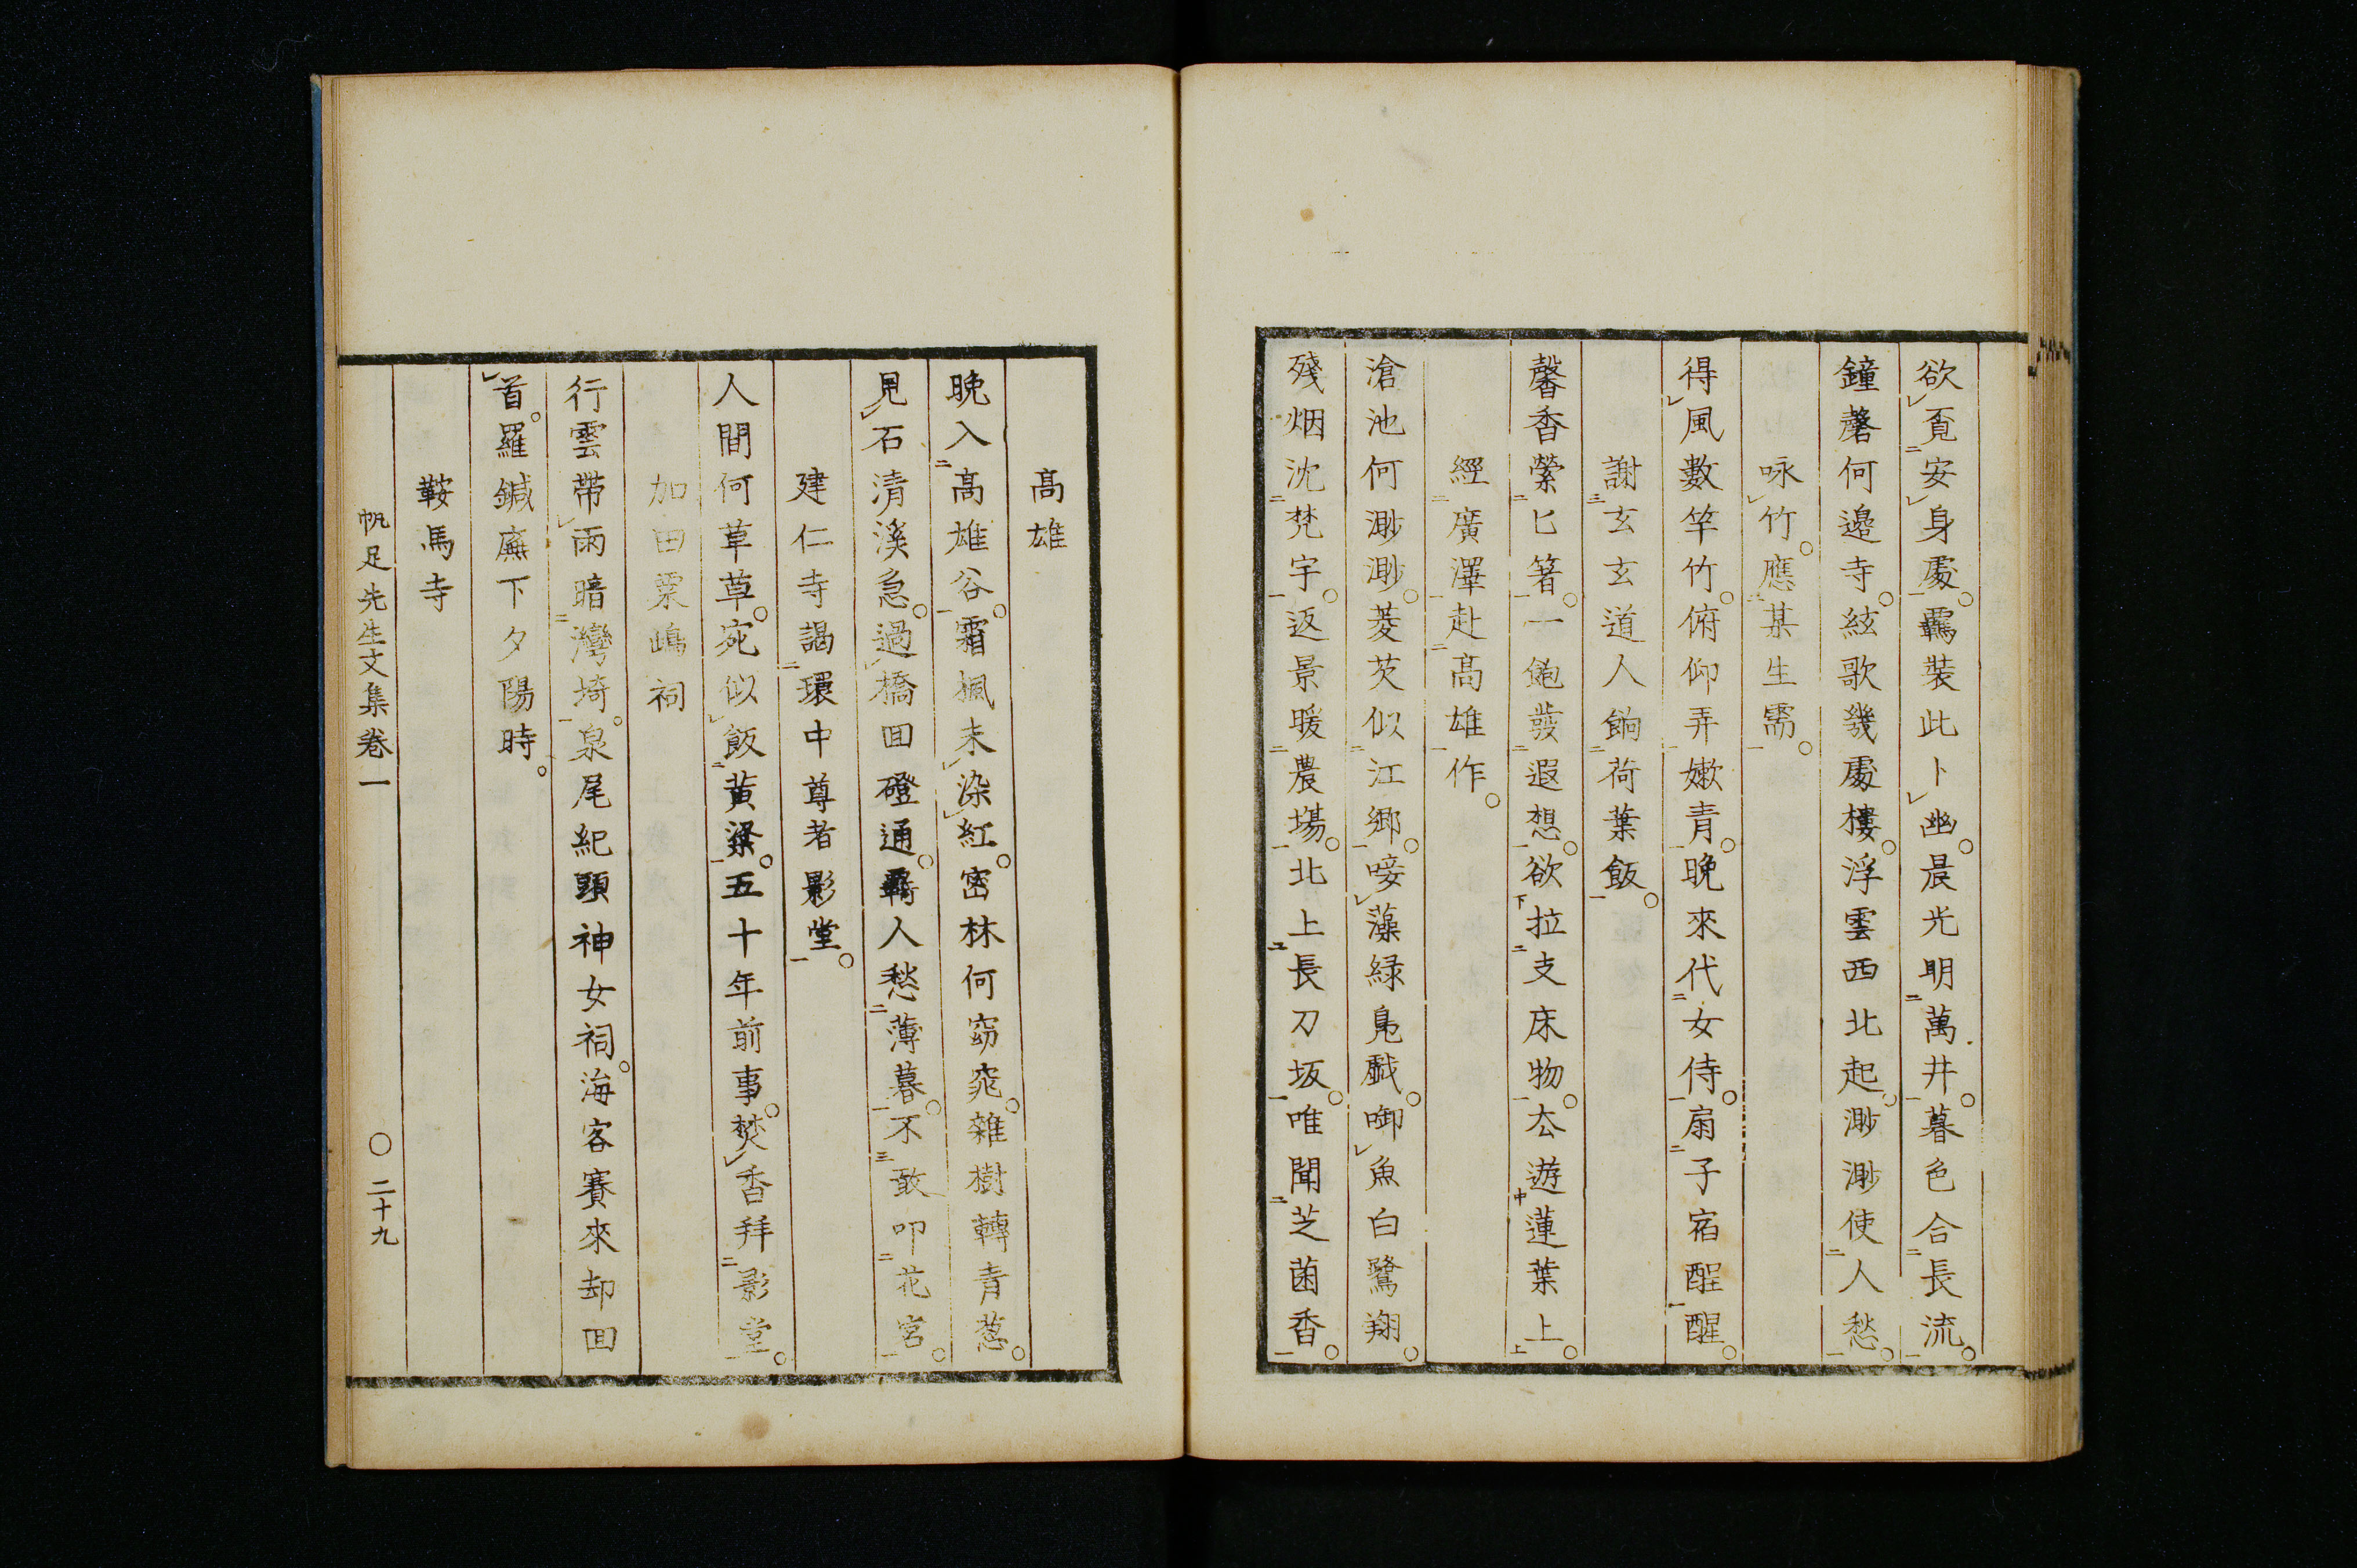 欲覔安身處。羈裝此卜幽。晨光明萬井。暮色合長流。
鐘磬何邊寺。絃歌幾處樓。浮雲西北起。渺渺使人愁。
咏竹。應某生需。
得風數竿竹。俯仰弄嫩青。晚來代女侍。扇子宿酲醒。
謝玄玄道人餉荷葉飯。
馨香縈匕箸。一飽發遐想。欲拉支床物。厺遊蓮葉上。
經廣澤赴高雄作。
滄池何渺渺。菱芡似江鄉。唼藻緑鳧戲。啣魚白鷺翔。
殘烟沈梵宇。返景暖農場。北上長刀坂。唯聞芝菌香。
高雄
晚入高雄谷。霜楓未染紅。密林何窈窕。雜樹轉青葱。
見石清溪急。過橋回磴通。羈人愁薄暮。不敢叩花宮。
建仁寺謁環中尊者影堂。
人間何草草。宛似飯黃粱。五十年前事。焚香拜影堂。
加田粟嶋祠
行雲帶雨暗灣埼。泉尾紀頭神女祠。海客賽來却回
首。羅鍼廡下夕陽時。
鞍馬寺
帆足先生文集卷一 〇二十九